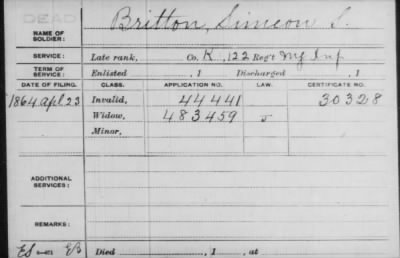 DEAD
NAME OF SOLDIER: Britton, Simeon S.
SERVICE: Late rank, Co. K, 122 Reg't Ny Inf
TERM OF SERVICE: Enlisted , 1 Discharged , 1
DATE OF FILING. CLASS. APPLICATION NO. LAW. CERTIFICATE NO.
1864 Apl 23 Invalid, 44441 30328
Widow, 483459
Minor,
ADDITIONAL SERVICES:
REMARKS:
Died , 1 , at